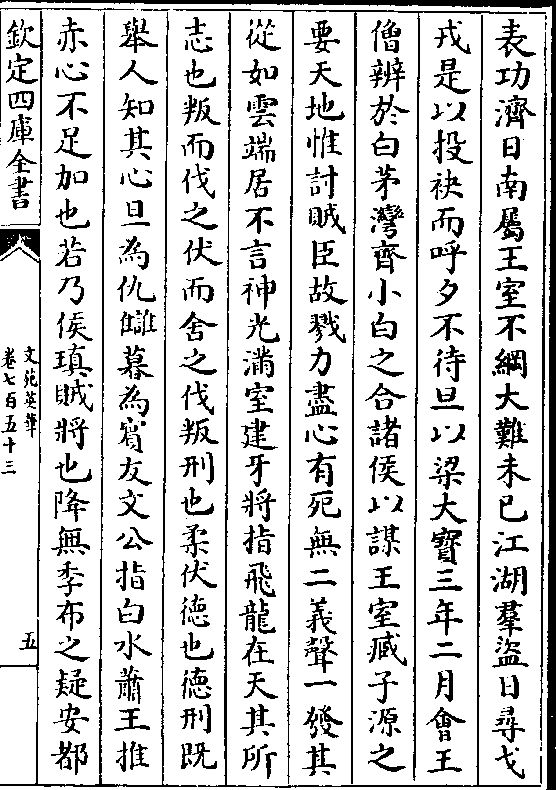 表功濟日南屬王室不綱大難未已江湖羣盜日尋戈
戎是以投袂而呼夕不待旦以梁大寶三年二月會王
僧辨於白茅灣齊小白之合諸侯以謀王室臧子源之
要天地惟討賊臣故戮力盡心有死無二義聲一發其
從如雲端居不言神光滿室建牙將指飛龍在天其所
志也叛而伐之伏而舍之伐叛刑也柔伏德也德刑既
舉人知其心旦為仇讎暮為賓友文公指白水蕭王推
赤心不足加也若乃侯瑱賊將也降無季布之疑安都
欽定四庫全書
文苑英華
卷七百五十三
五